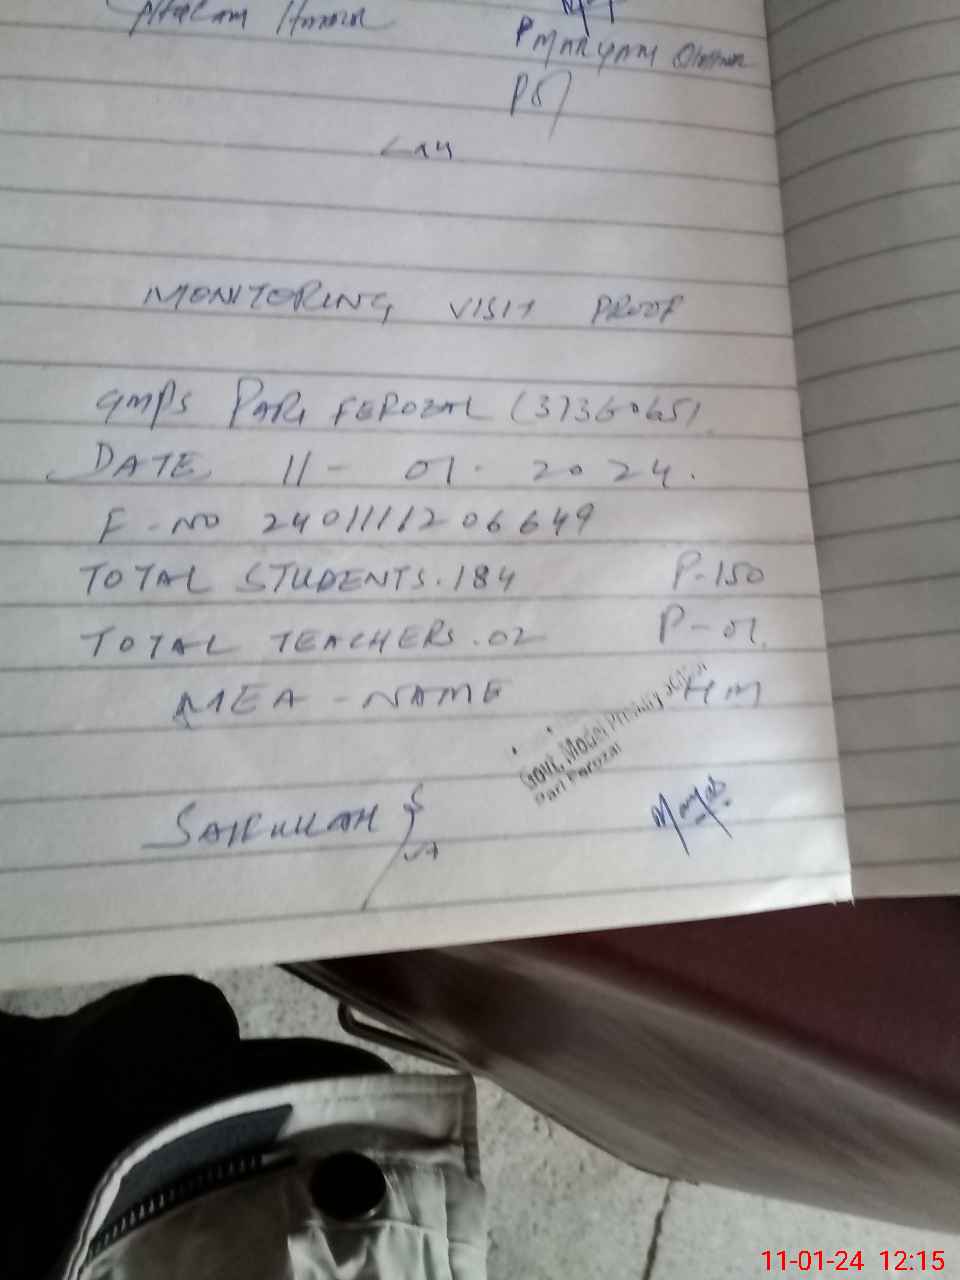 MARYAM
PST
MONITORING VISIT PROOF
GMPS PARI FEROZAL (37360651
DATE 11-01-2024.
F-NO 2401111206649
TOTAL STUDENTS.184 P-150
TOTAL TEACHERS.02 P-01.
MEA-NAME HM
Govt. Model Primary School
Pari Ferozal
11-01-24 12:15